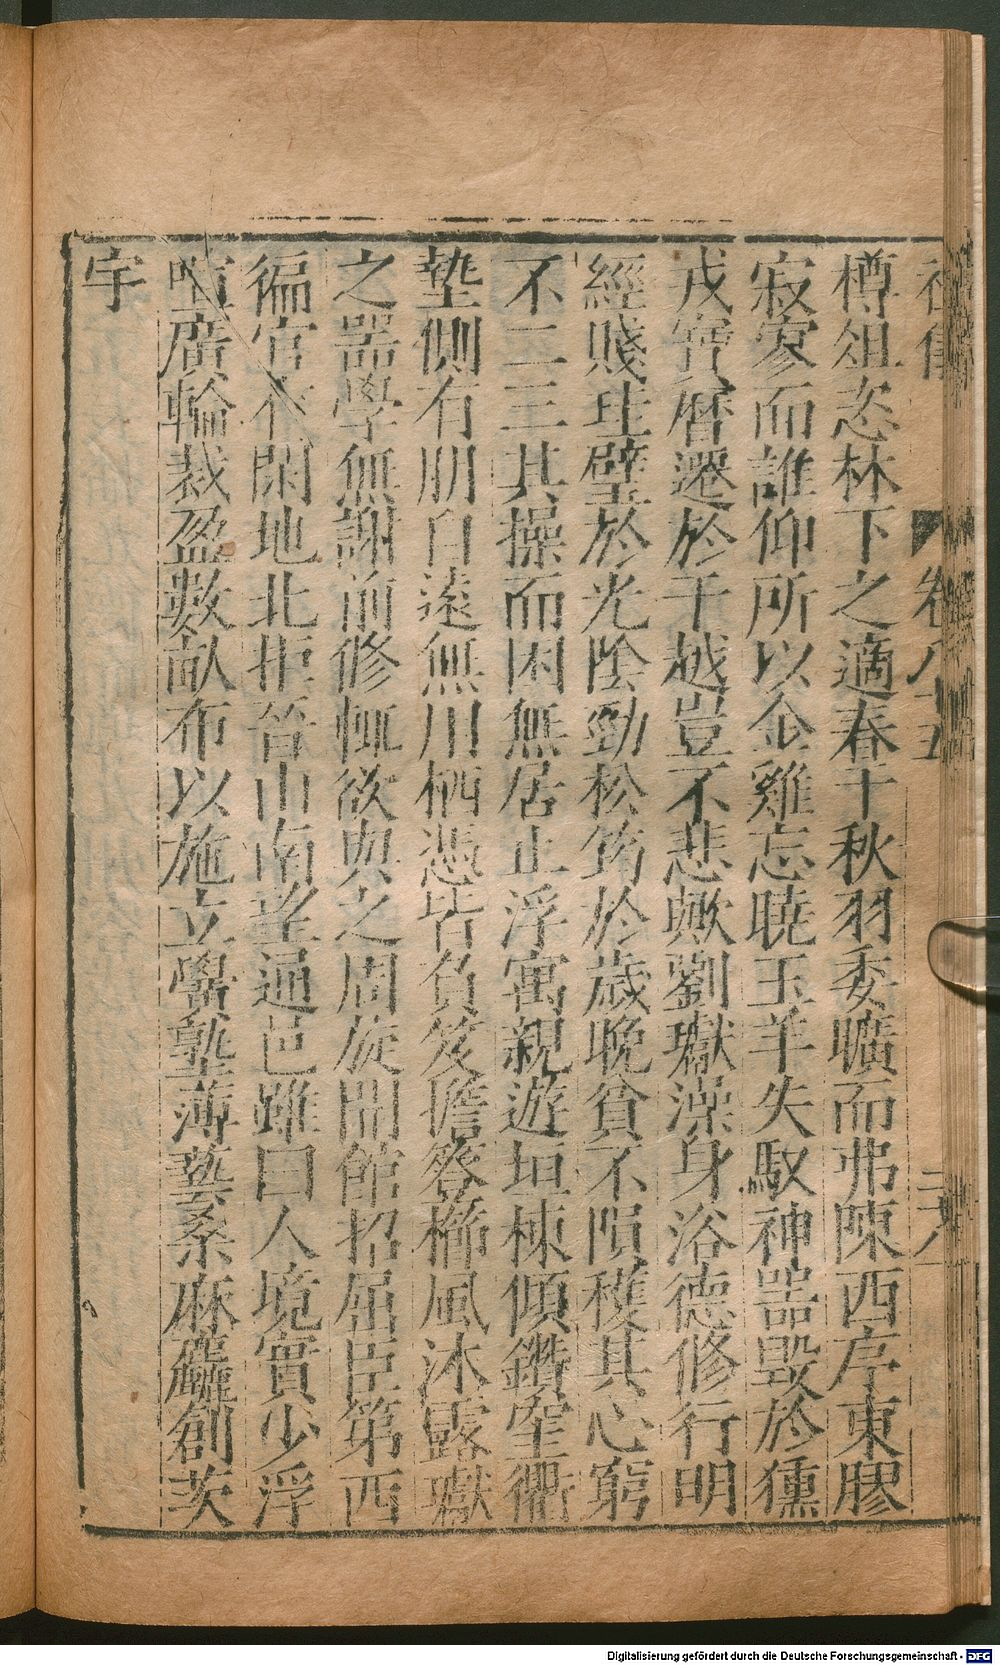 卷八十五 二六
樽俎恣林下之適春干秋羽委曠而弗陳西序東膠
寂寥而誰仰所以金雞忘曉玉羊失馭神器毀於獯
戎寶曆遷於干越豈不悲歟劉瓛澡身浴德修行明
經賤珪璧於光陰勁松筠於歲晚貧不隕穫其心窮
不二三其操而困無居止浮寓親遊垣棟傾鑽窐衢
墊側有朋自遠無用栖憑皆負笈擔簦櫛風沐露瓛
之器學無謝前修輒欲與之周旋開館招屈臣第西
徧官有閑地北拒晉山南望通邑雖曰人境實少浮
喧廣輪裁盈數畝布以施立黌塾薄藝桑麻麤創茨
宇
Digitalisierung gefördert durch die Deutsche Forschungsgemeinschaft - DFG